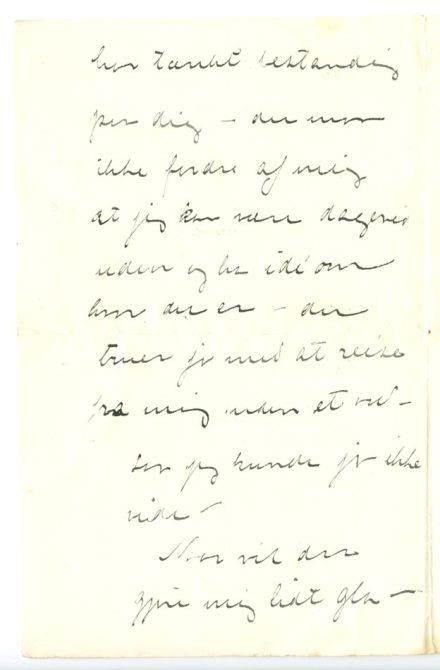 har tænkt bestandig
paa dig – du maa
ikke fordre af mig
at jeg kan være dagevis
uden og ha idé om
hvor du er – du
truer jo med at reise
fra mig uden et ord –
saa jeg kunde jo ikke
vide –
Naar vil du
gjøre mig lidt gla –